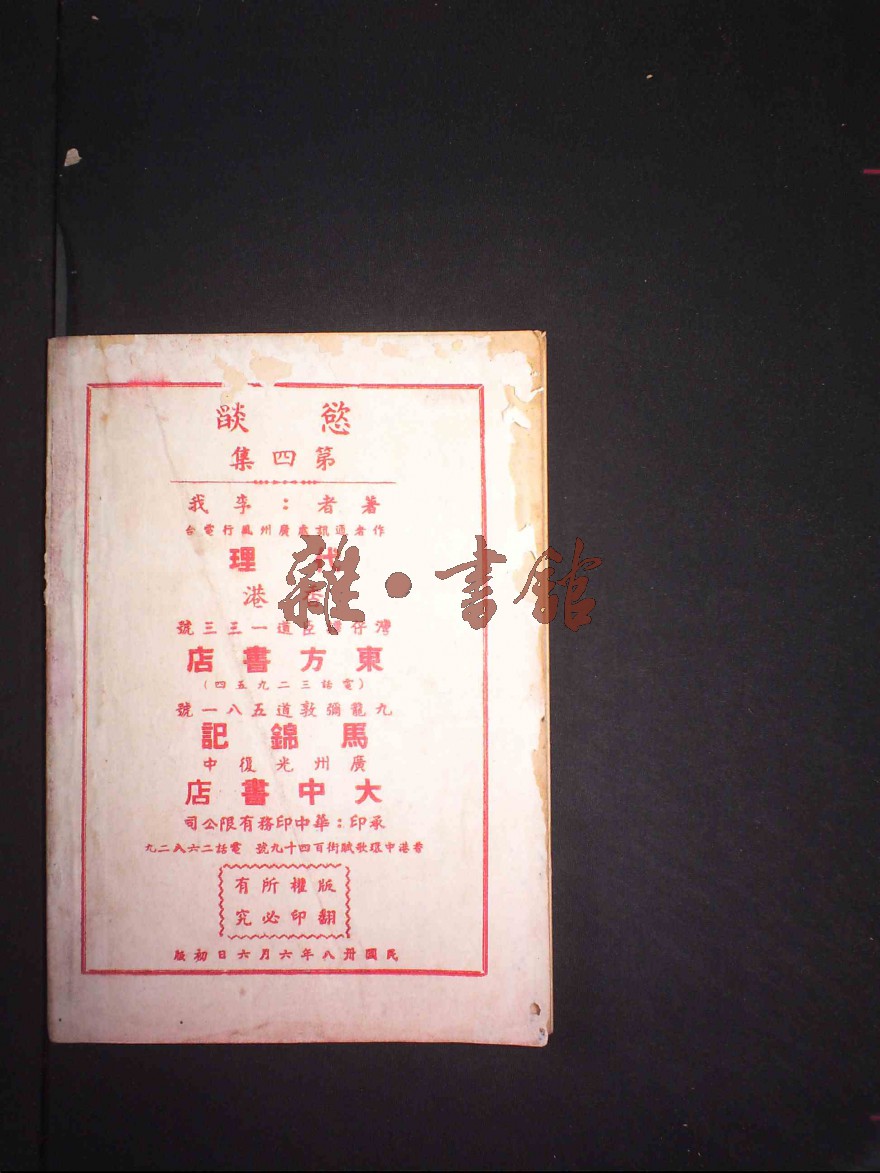 慾燄
第四集
著者：李我
作者通訊處廣州風行電台
代理
香港
灣仔莊士道一三三號
東方書店
(電話三二九五四)
九龍彌敦道五八一號
馬錦記
廣州光復中
大中書店
承印：華中印務有限公司
香港中環歌賦街百四十九號 電話二六八二九
版權所有
翻印必究
民國卅八年六月六日初版
雜·書館